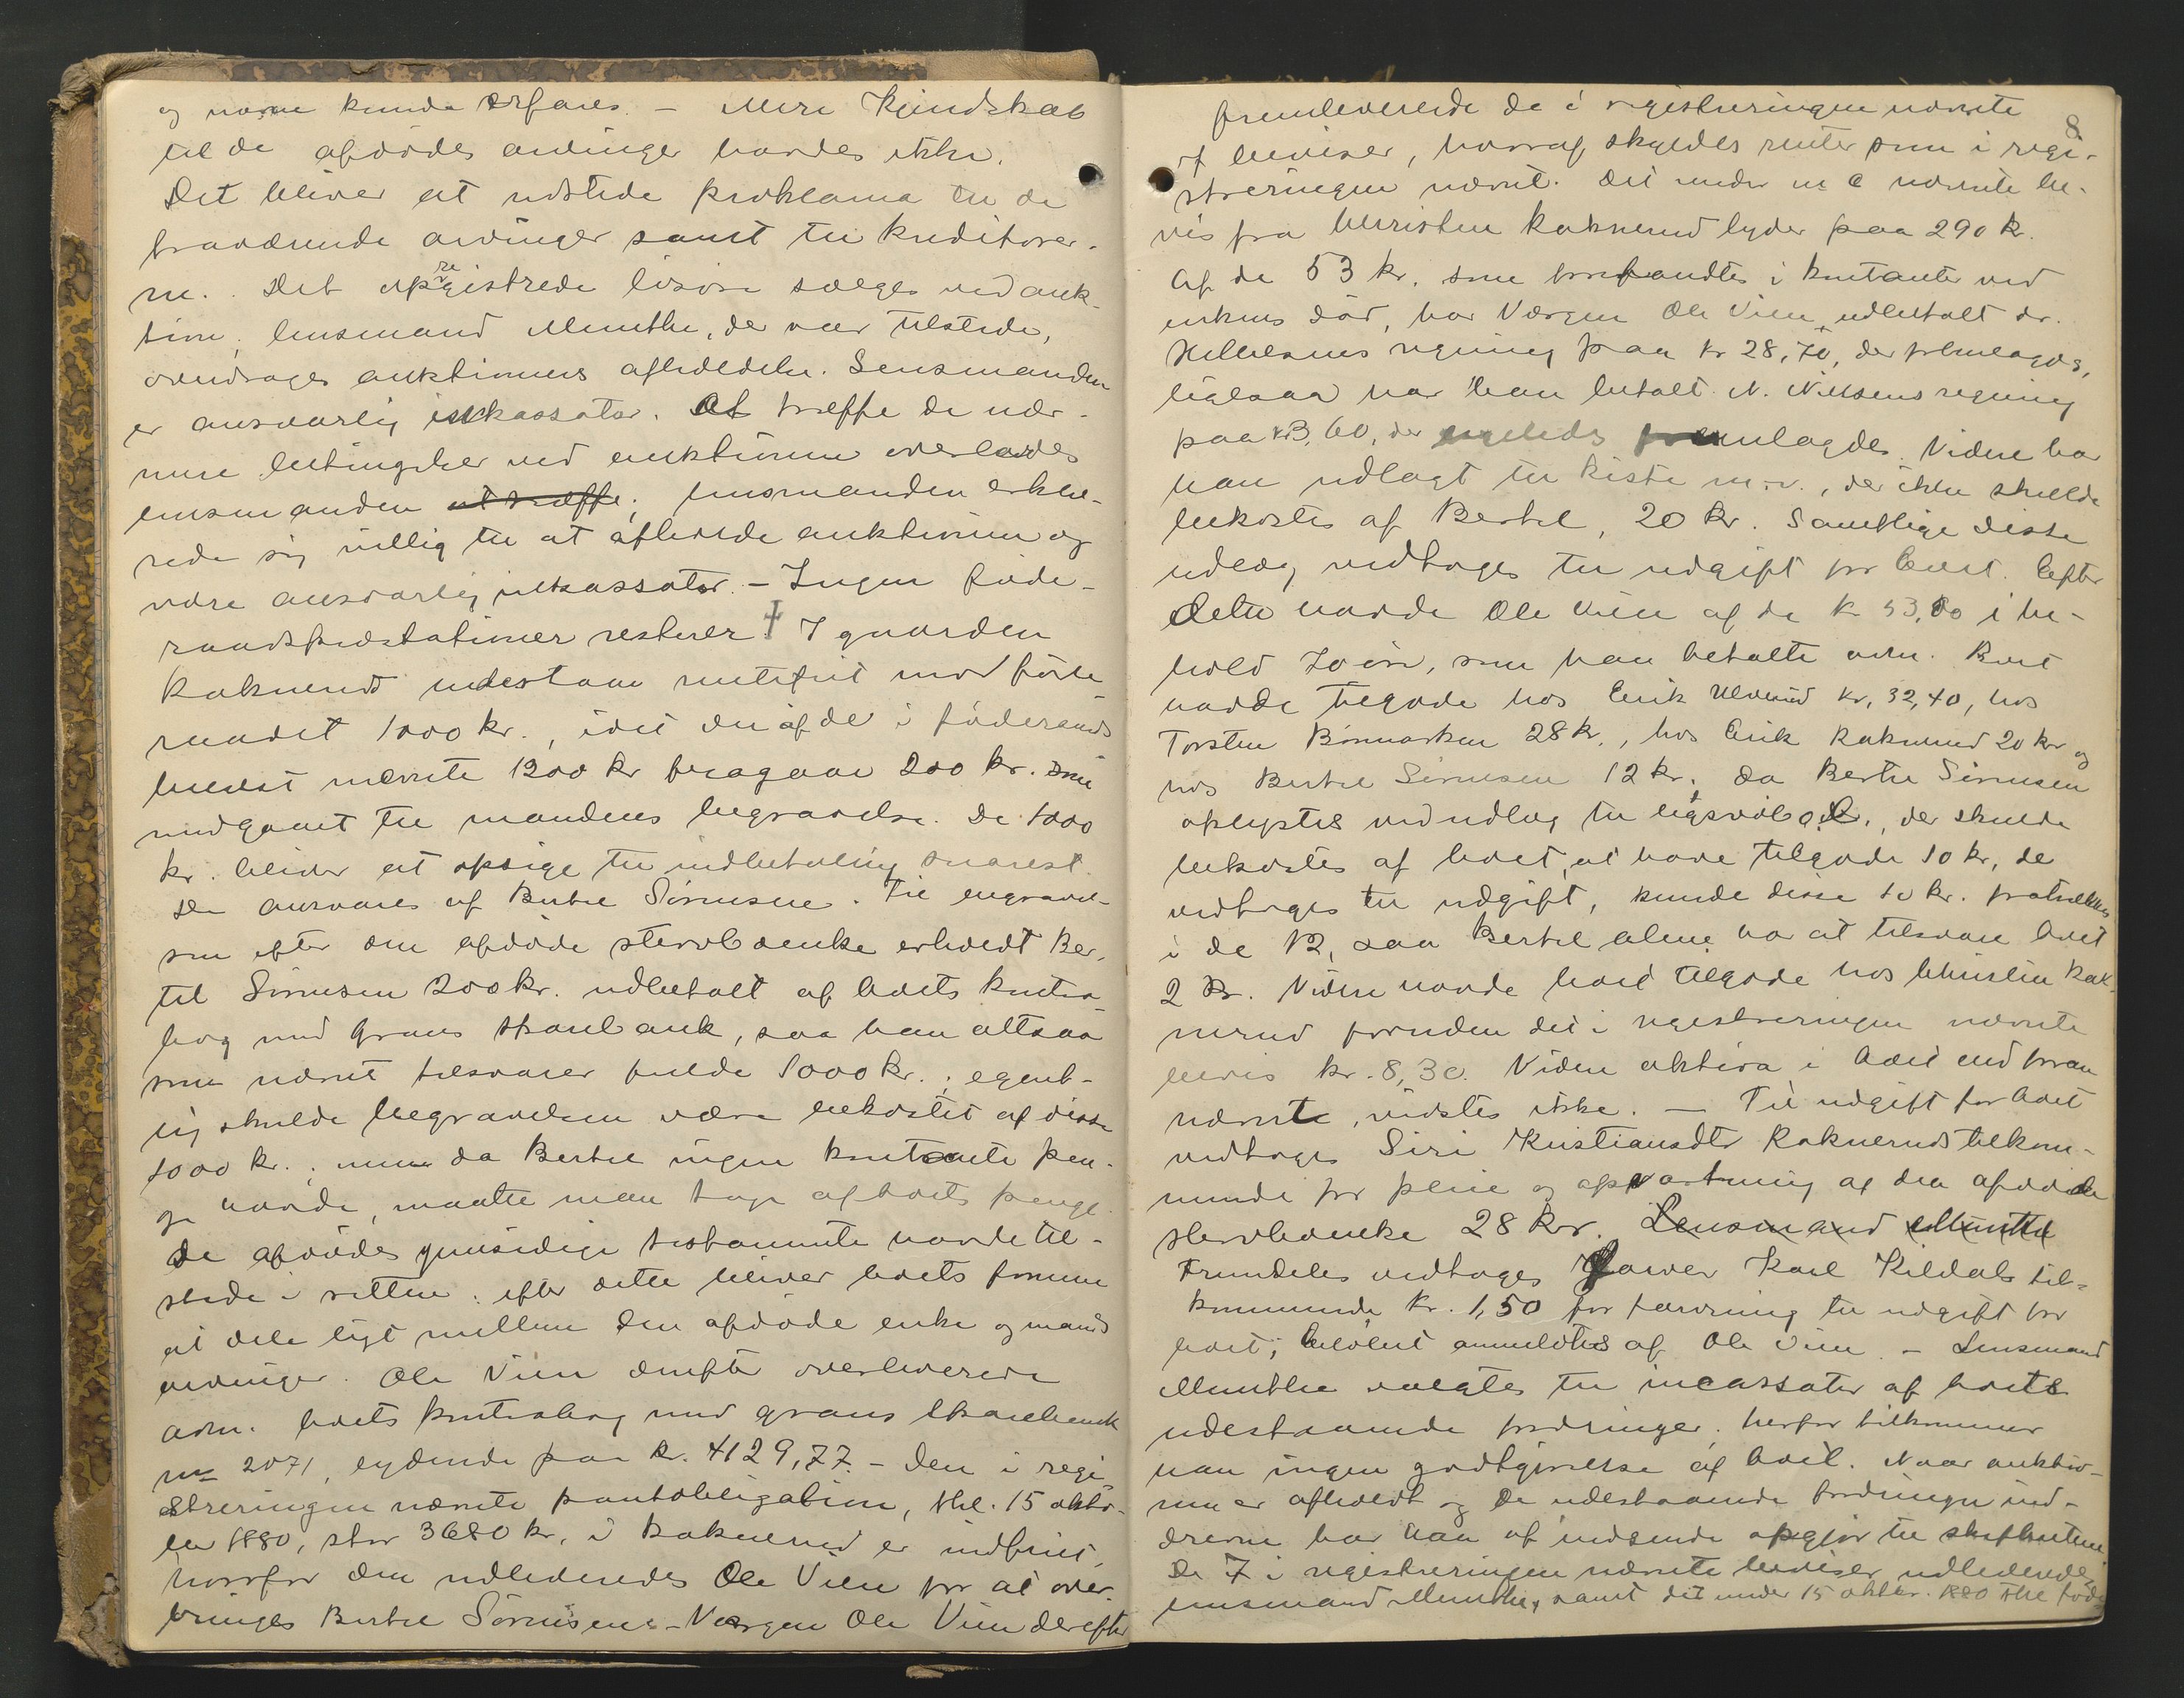 og navne kunde erfares. – Mere Kjendskab
til de afdødes arvinger havdes ikke.
Det bliver at udstede proklama til de
fraværende arvinger samt til kreditorer-
ne. Det opregistrede løsøre sælges ved auk-
tion; lensmand Munthe, der var tilstede,
overdrages auktionens afholdelse. Lensmanden
er ansvarlig inkassator. At træffe de nær-
mere betingelser ved auktionen overlodes
lensmanden at træffe; lensmanden erklæ-
rede sig villig til at afholde auktionen og
være ansvarlig inkassator. – Ingen føde-
raadspræstationer resterer. I gaarden
Kaknerud indestaar rentefrit mod føde-
raadet 1000 kr., idet der af de i føderaads
brevet nævnte 1200 kr fragaar 200 kr. som
medgaaet til mandens begravelse. De 1000
kr. bliver at opsige til indbetaling snarest.
De ansvares af Bertel Sørensen. Til begravel-
sen efter den afdøde stervboenke erholdt Ber-
tel Sørensen 200 kr. udbetalt af boets kontra
bog med Grans sparebank, saa han altsaa
som nævnt tilsvarer fulde 1000 kr.; egent-
lig skulde begravelsen være bekostet af disse
1000 kr.; men da Bertel ingen kontante pen-
ge havde, maatte man tage af boets penge.
De afdødes gjensidige testamente havde til-
stede i retten; efter dette bliver boets formue
at dele ligt mellem den afdøde enke og mands
arvinger. Ole Vien derefter overleverede
adm. boets kontrabog med grans sparebank
no 2071, lydende paa kr. 4129,77. – Den i regi-
streringen nævnte pantobligation, thl. 15 okto-
ber 1880, stor 3680 kr, i Kaknerud er indfriet,
hvorfor den udleveredes Ole Vien for at over-
bringes Bertel Sørensen. – Værgen Ole Vien derefter
8
fremleverede de i registreringen nævnte
7 beviser, hvoraf skyldes renter som i regi-
streringen nævnt. Det under no 6 nævnte be-
vis fra Christen Kaknerud lyder paa 290 kr.
Af de 53 kr. som forefandtes i kontanter ved
enkens død, har Værgen Ole Vien udbetalt dr.
regning paa kr 28,70, der fremlagdes,
ligesaa har han betalt N. Nilsens regning
paa kr 3,60, der ligeledes fremlagdes. Videre har
han udlagt til kiste m.v., der ikke skulde
bekostes af Bertel, 20 kr. Samtlige disse
udlæg vedtoges til udgift for boet. Efter
dette havde Ole Vien af de kr 53,00 i be-
hold 70 øre, som han betalte adm. Boet
havde tilgode hos Erik Ulverud kr, 32,40, hos
Torsten Bønmarken 28 kr., hos Erik Kaknerud 20 kr og
hos Bertel Sørensen 12 kr; da Bertel Sørensen
oplystes ved udlæg til ligsvøb o.l., der skulde
bekostes af boet, at have tilgode 10 kr, de
vedtoges til udgift, kunde disse 10 kr. fratrækkes
i de 12, saa Bertel alene har at tilsvare boet
2 kr. Videre havde boet tilgode hos Christen Kak-
nerud foruden det i registreringen nævnte
bevis kr. 8,30. Videre aktiva i boet end foran
nævnte, vidstes ikke. – Til udgift for boet
vedtoges Siri Kristiansdtr Kakneruds tilkom-
mende for pleie og opvartning af den afdøde
stervboenke 28 kr. Lensmand Munthe
Fremdeles vedtoges Garver Karl Kildals til-
kommende kr. 1,50 for farvning til udgift for
boet; beløbet anmeldtes af Ole Vien. – Lensmand
Munthe valgtes til incassator af boets
udestaaende fordringer; herfor tilkommer
han ingen godtgjørelse af boet. Naar auktio-
nen er afholdt og de udestaaende fordringer ind-
drevne har han at indsende opgjør til skifteretten.
De 7 i registreringen nævnte beviser udleveredes
lensmand Munthe, samt det under 15 oktbr. 1880 thl føde